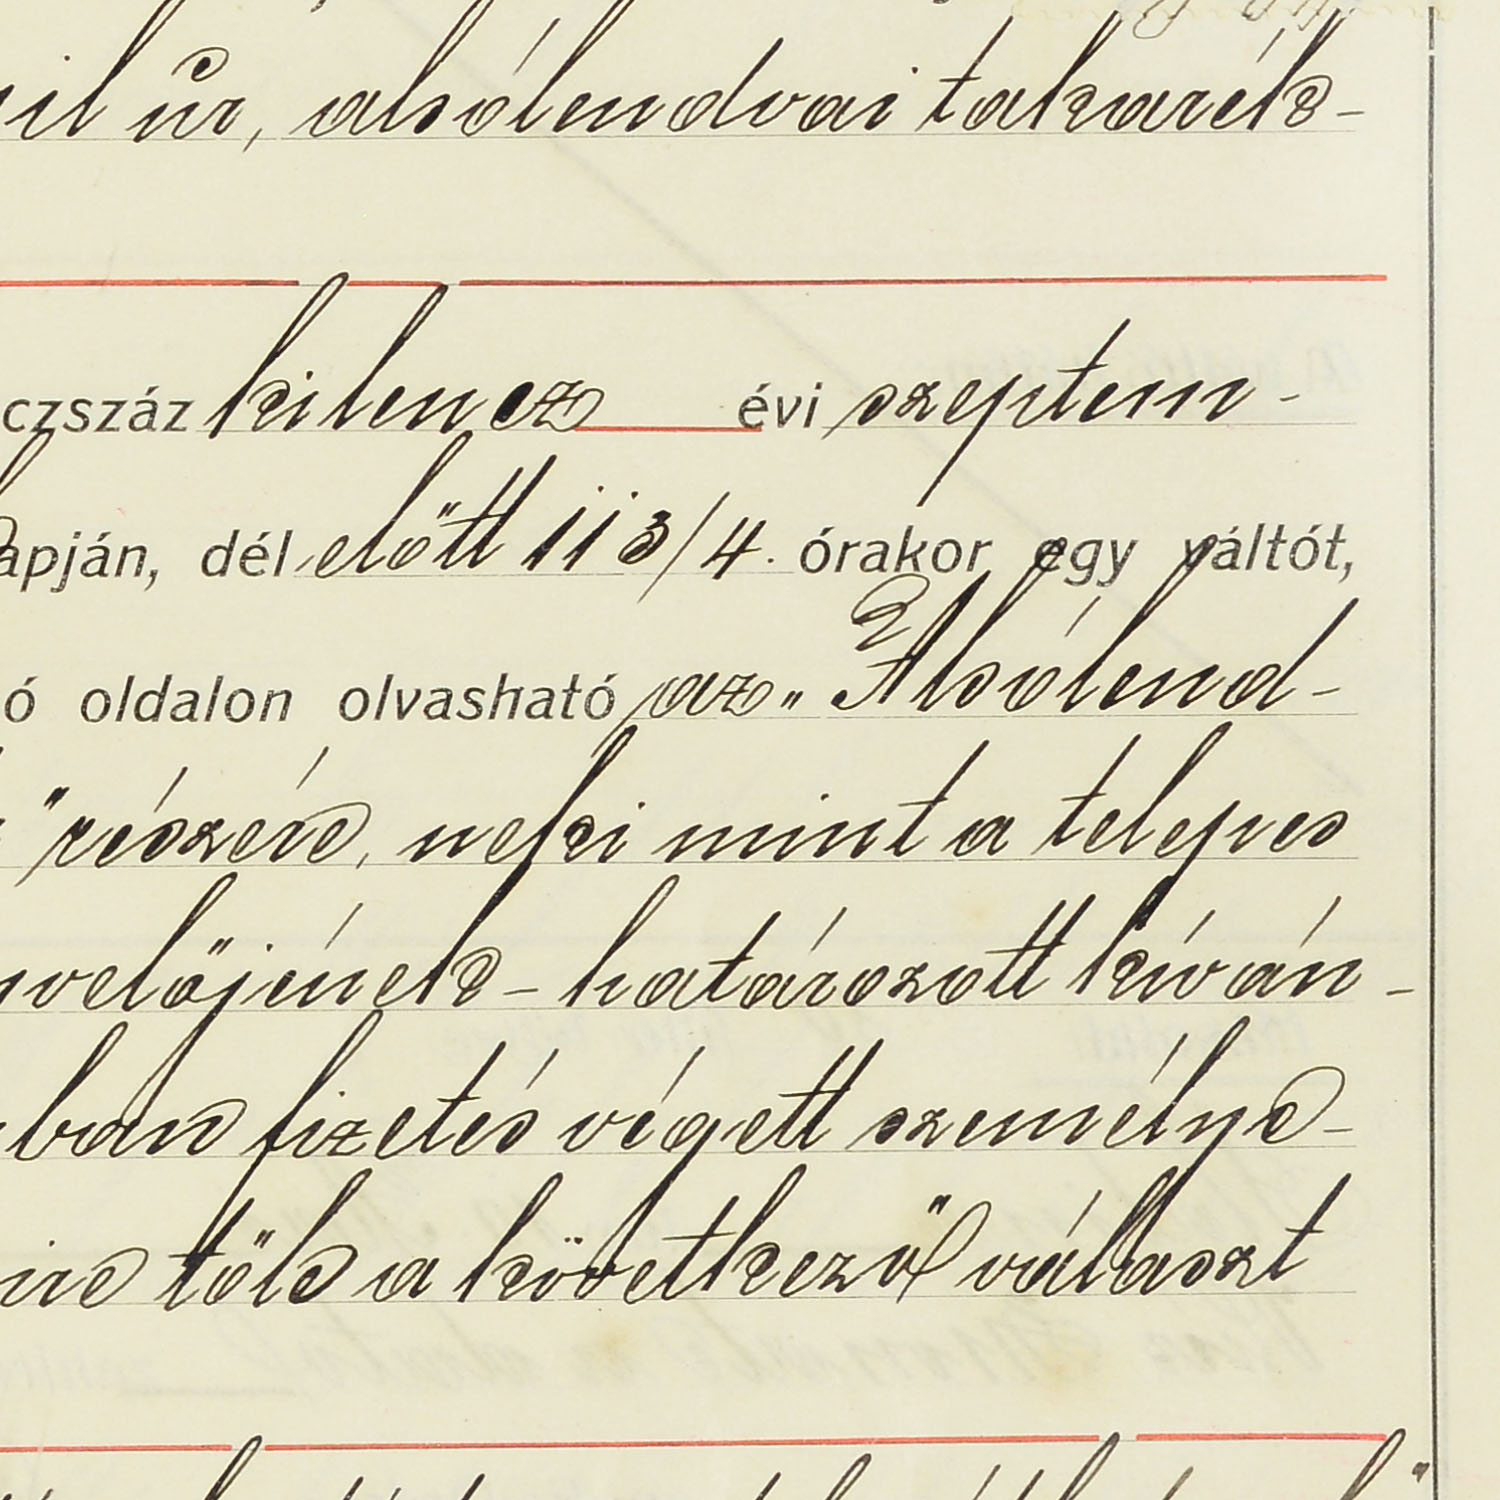 il úr, alsólendvai takarék-
czszáz kilencz évi szeptem-
apján, dél előtt 11 3/4. órakor egy váltót,
ó oldalon olvasható az „Alsólend-
" részére, neki mint a telepes
velőjének - határozott kíván-
ban fizetés végett személye-
ire tőle a következő választ